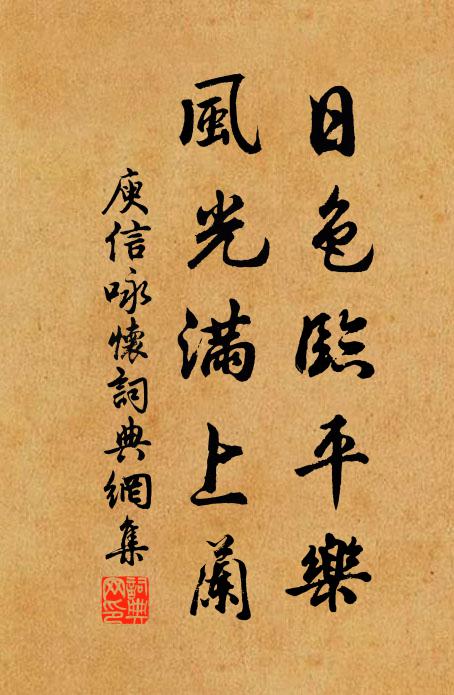 日色臨平樂
風光滿上蘭
庾信咏懷詞典網集
詞典网印